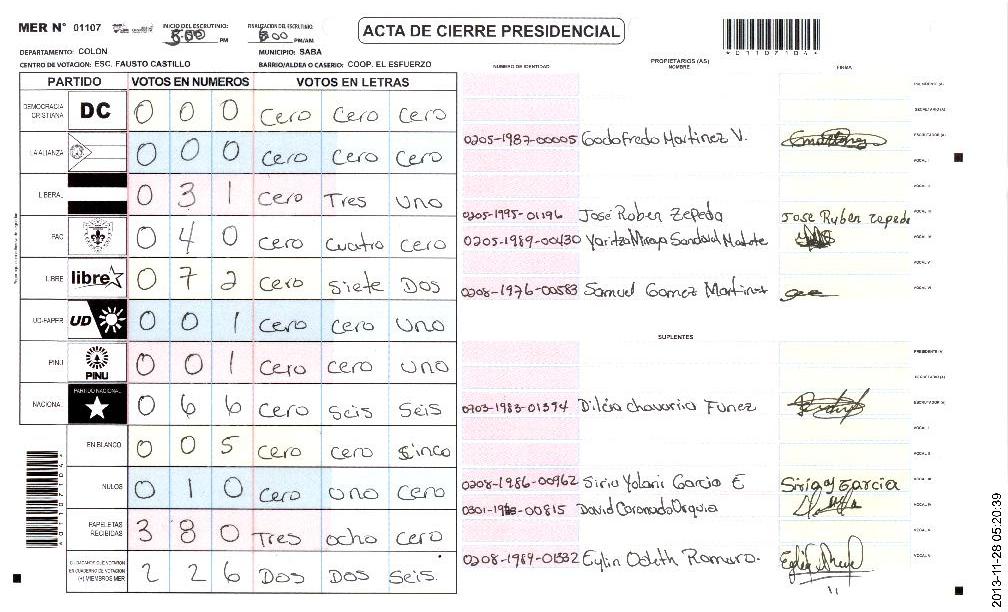 MER N° 01107
INICIO DEL ESCRUTINIO: 5:00 PM
FINALIZACION DEL ESCRUTINIO: 8:00 PM/AM
ACTA DE CIERRE PRESIDENCIAL
*01107104*
DEPARTAMENTO: COLON MUNICIPIO: SABA
CENTRO DE VOTACION: ESC. FAUSTO CASTILLO BARRIO/ALDEA O CASERIO: COOP. EL ESFUERZO
PARTIDO VOTOS EN NUMEROS VOTOS EN LETRAS
DEMOCRACIA CRISTIANA DC 0 0 0 Cero Cero Cero
LA ALIANZA 0 0 0 Cero Cero Cero
LIBERAL 0 3 1 Cero Tres Uno
PAC 0 4 0 Cero Cuatro Cero
LIBRE libre 0 7 2 Cero Siete Dos
UD-FAPER UD 0 0 1 Cero Cero Uno
PINU PINU 0 0 1 Cero Cero Uno
NACIONAL PARTIDO NACIONAL 0 6 6 Cero Seis Seis
EN BLANCO 0 0 5 Cero Cero Sinco
NULOS 0 1 0 Cero Uno Cero
PAPELETAS RECIBIDAS 3 8 0 Tres ocho cero
CIUDADANOS QUE VOTARON EN CUADERNO DE VOTACION (+) MIEMBROS MER 2 2 6 Dos Dos Seis.
PROPIETARIOS (AS)
NUMERO DE IDENTIDAD NOMBRE FIRMA
PRESIDENTE (A)
SECRETARIO (A)
0205-1987-00005 Godofredo Martinez V. ESCRUTADOR (A)
VOCAL I
VOCAL II
0205-1995-01196 José Ruben Zepeda Jose Ruben zepeda VOCAL III
0205-1989-00430 Yaritza Sandoval VOCAL IV
VOCAL V
0208-1976-00583 Samuel Gomez Martinez VOCAL VI
SUPLENTES
PRESIDENTE (A)
SECRETARIO (A)
0703-1983-01374 Dilcia Chavarria Funez ESCRUTADOR (A)
VOCAL I
VOCAL II
0208-1986-00962 Siria Yolani Garcia E Siria y Garcia VOCAL III
00815 David Coronado Urquia VOCAL IV
VOCAL V
0208-1989-01532 Eylin Odeth Romero. VOCAL VI
2013-11-28 05:20:39